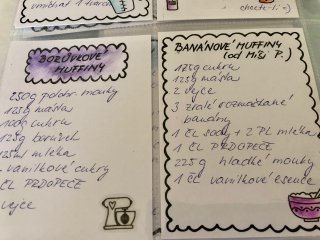 vmíchat 1
BORŮVKOVÉ
MUFFINY
250g polohr. mouky
125g másla
100g cukru
125g borůvek
125ml mléka
vanilkové cukry
ČL PRDOPEČE
vejce
chcete-li. :-)
BANÁNOVÉ MUFFINY
(od Míši P.)
125g cukru
125g másla
2 vejce
3 zralé rozmačkané
banány
1 ČL sody + 2 PL mléka
1 ČL PRDOPEČE
225g hladké mouky
1 ČL vanilkové esence